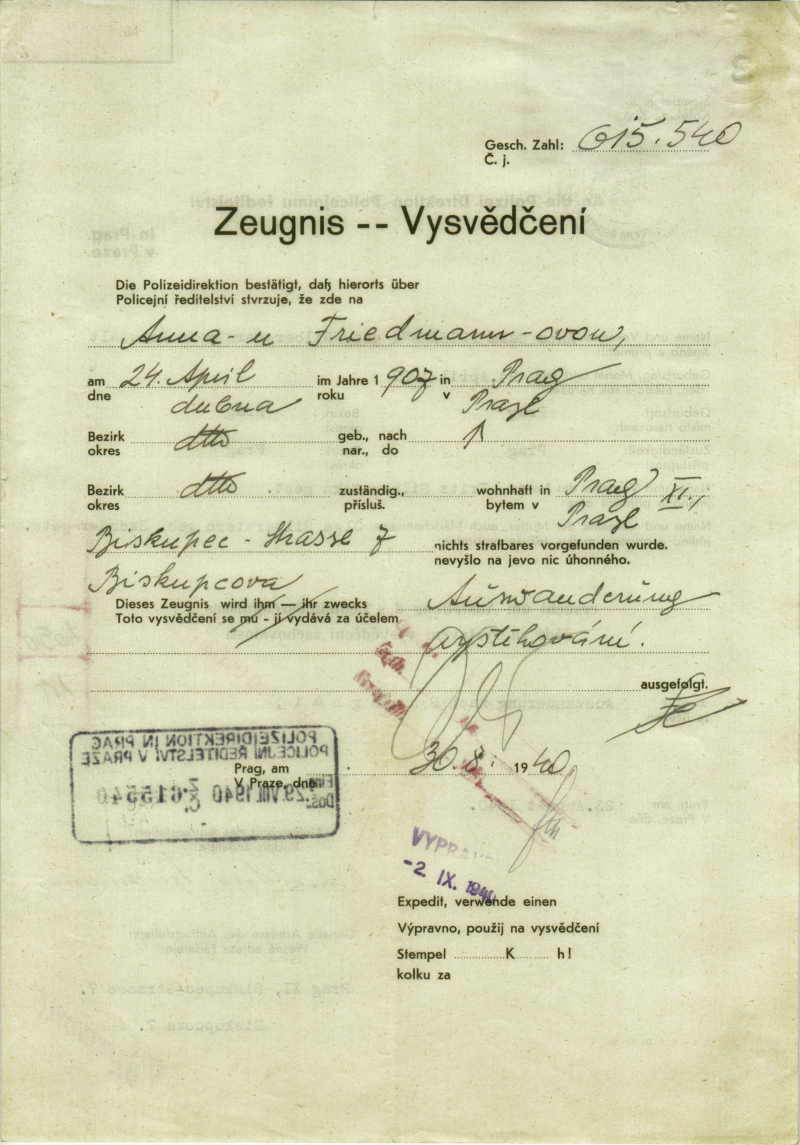 Gesch. Zahl: 615.540
Č. j.
Zeugnis -- Vysvědčení
Die Polizeidirektion bestätigt, daß hierorts über
Policejní ředitelství stvrzuje, že zde na
Anna-u Friedmann-ovou,
am 24. April im Jahre 1 907 in Prag
dne dubna roku v Praze
Bezirk dtto geb., nach
okres nar., do
Bezirk dtto zuständig., wohnhaft in Prag XI.,
okres přísluš. bytem v Praze
Biskupec - Strasse 7 nichts strafbares vorgefunden wurde.
nevyšlo na jevo nic úhonného.
Biskupcova
Dieses Zeugnis wird ihm — ihr zwecks Auswanderung
Toto vysvědčení se mu - jí vydává za účelem
vystěhování.
ausgefolgt.
POLIZEIDIREKTION IN PRAG
POLICEJNÍ ŘEDITELSTVÍ V PRAZE
Prag, am 30.8. 1940
V Praze, dne
29.VIII.1940 615540
VYPRAV
-2 IX. 1940
Expedit, verwende einen
Výpravno, použij na vysvědčení
Stempel K h!
kolku za